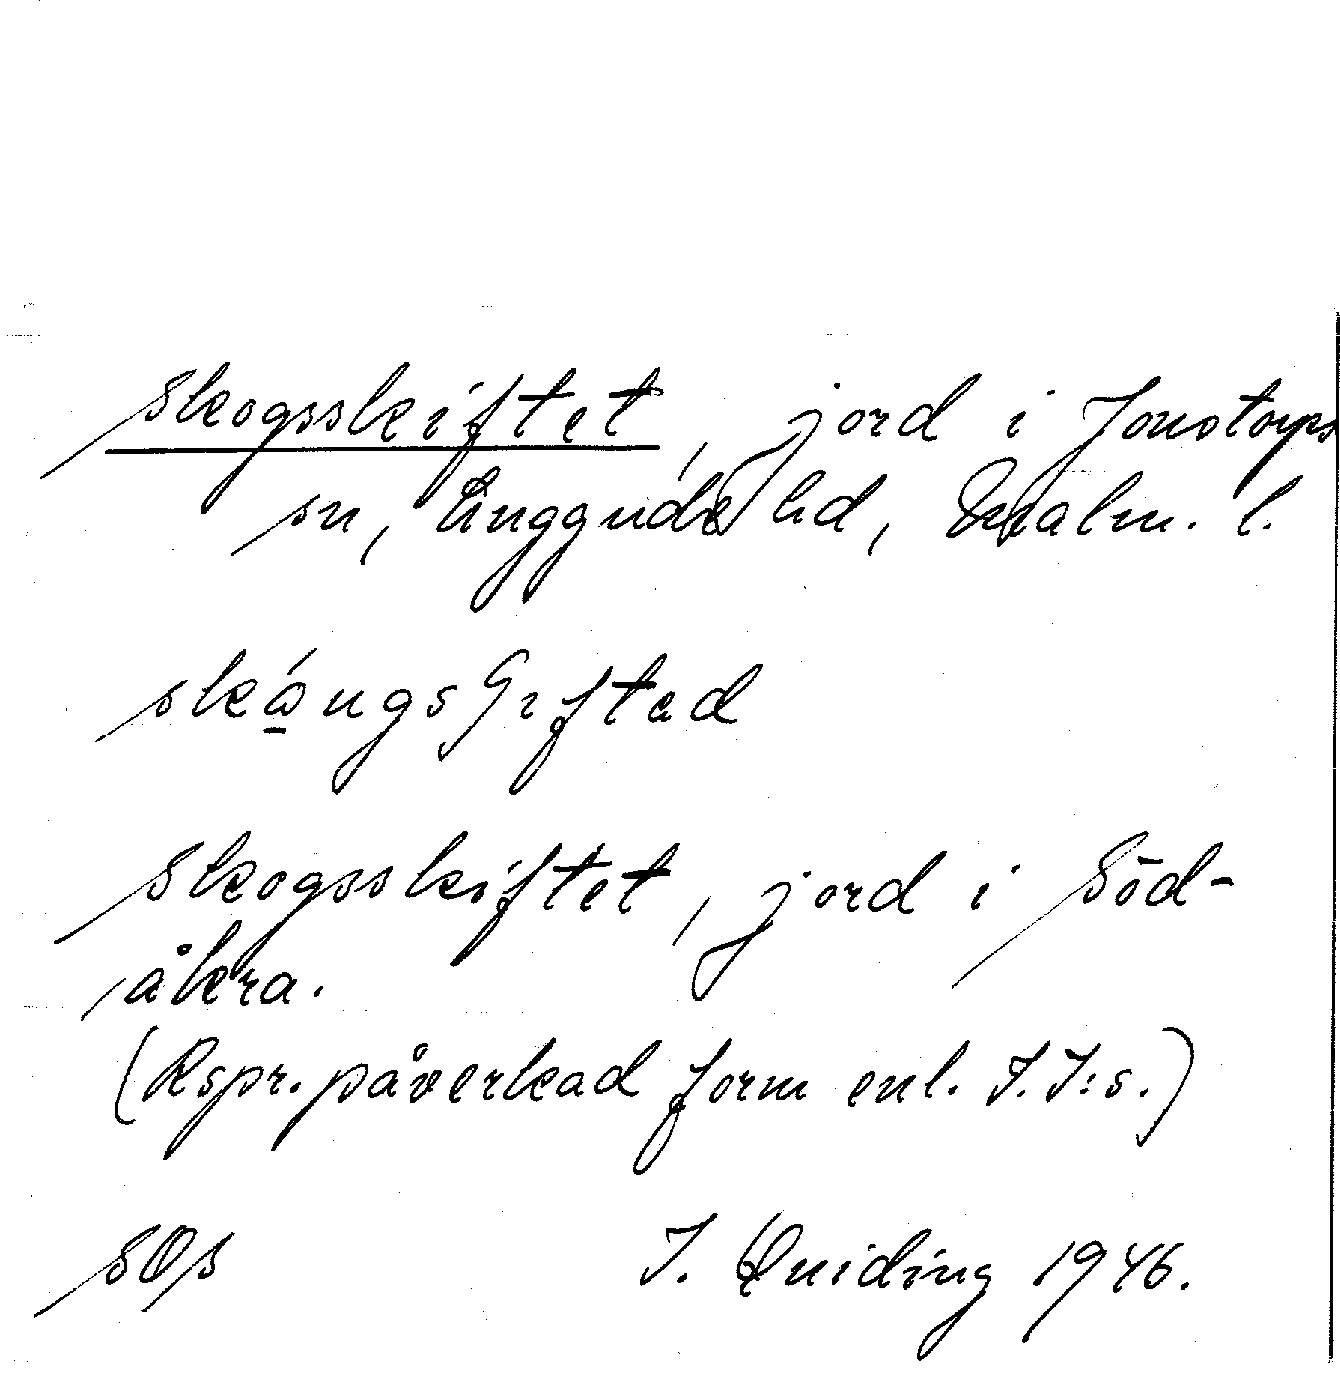 Skogsskiftet, jord i Jonstorps
sn, Luggude hd, Malm. l.
Skogsskiftet, jord i Söd-
åkra.
(Rspr. påverkad form enl. I. I:s.)
SOs I. Quiding 1946.